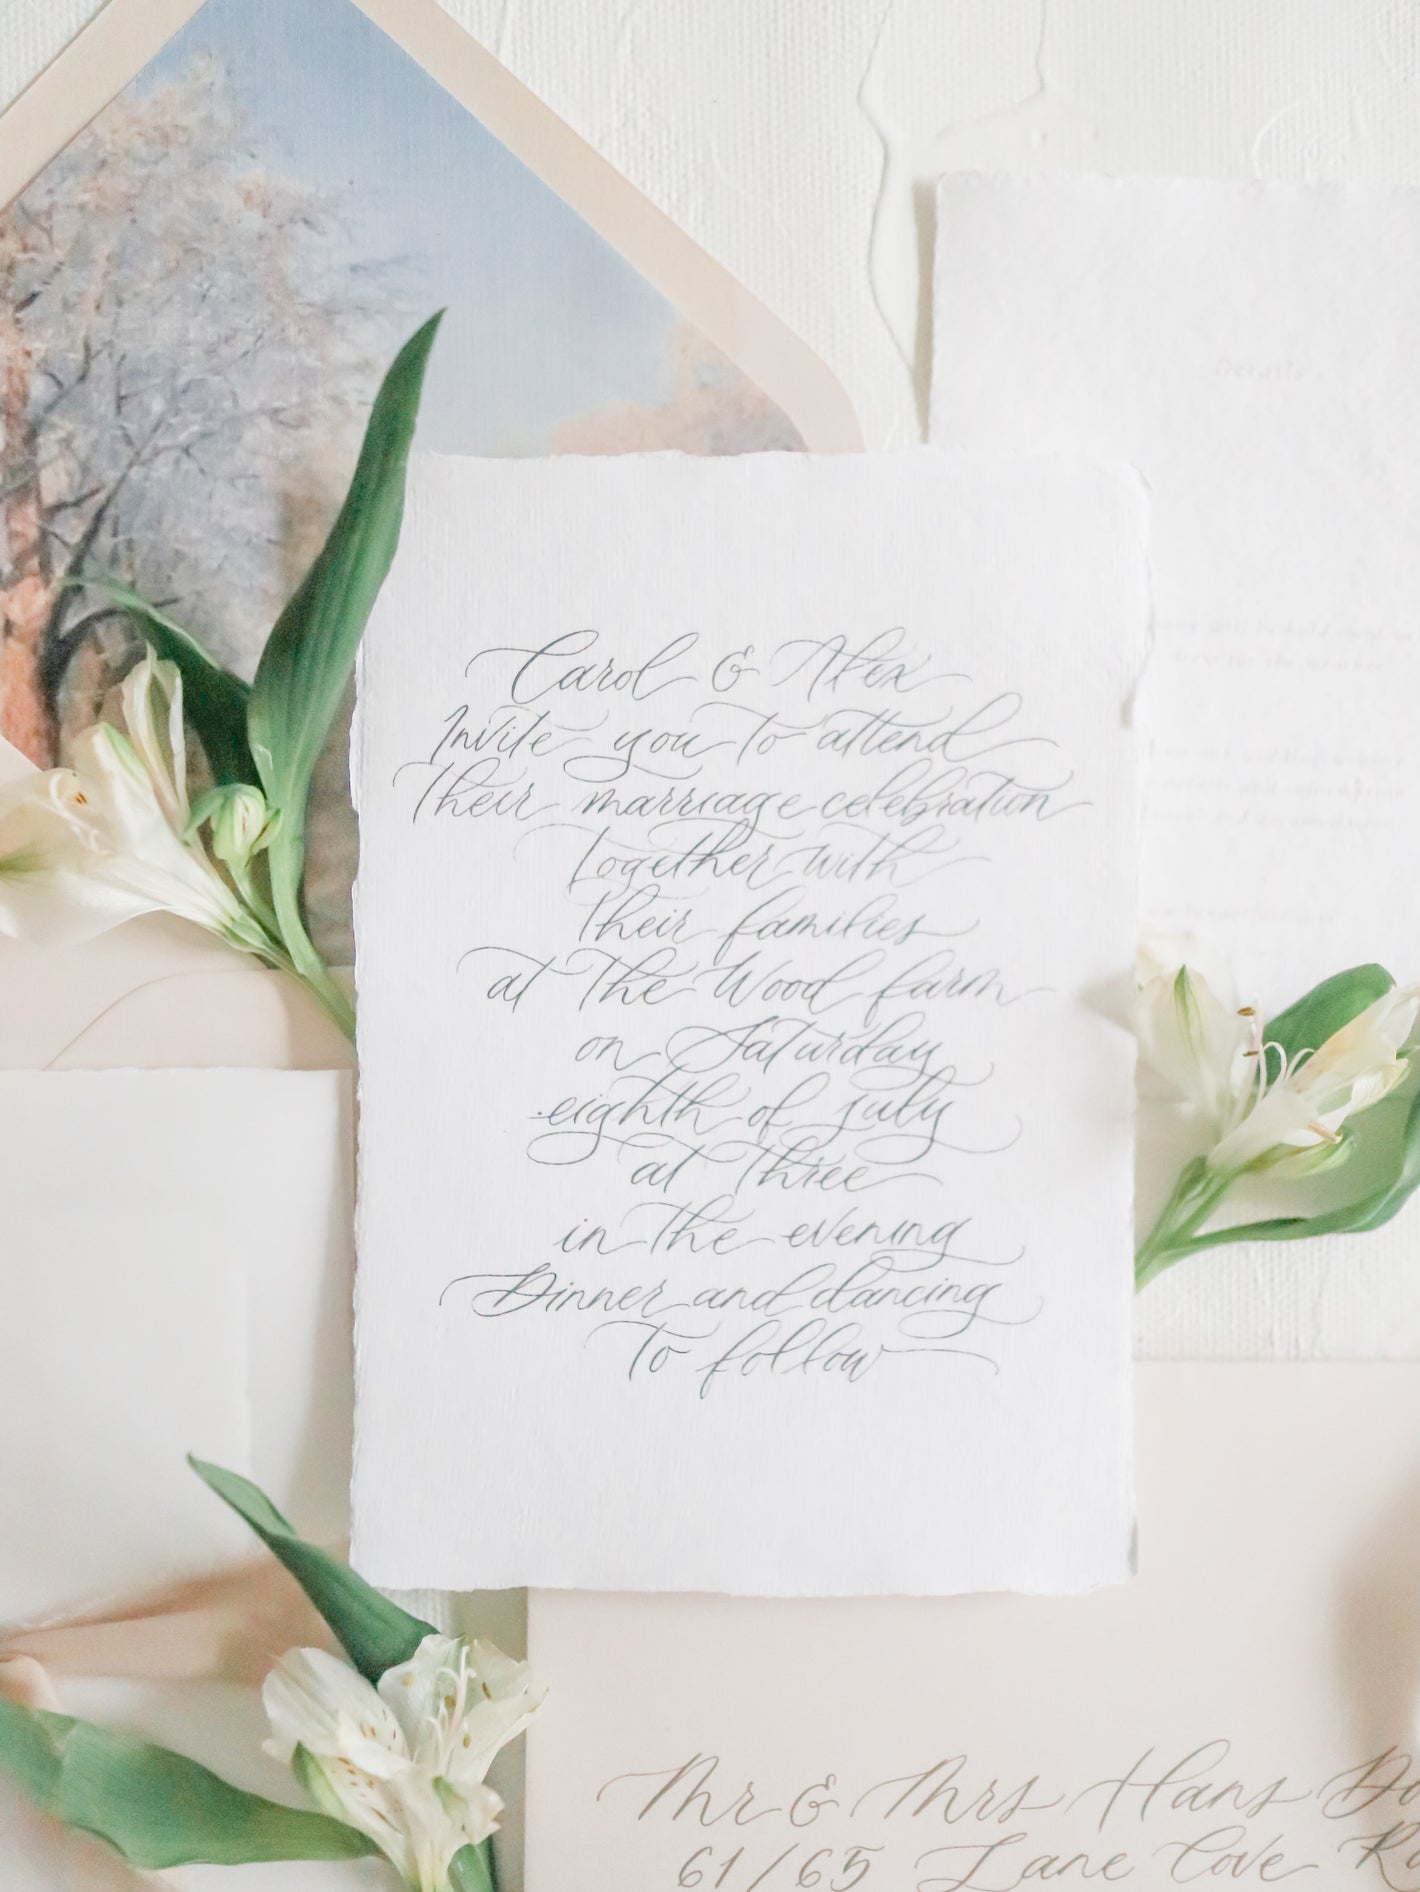 Details
Carol & Alex
Invite you to attend
Their marriage celebration
Together with
Their families
at The Wood farm
on Saturday
eighth of july
at Three
in The evening
Dinner and dancing
To follow
Mr & Mrs Hans
61/65 Lane Cove